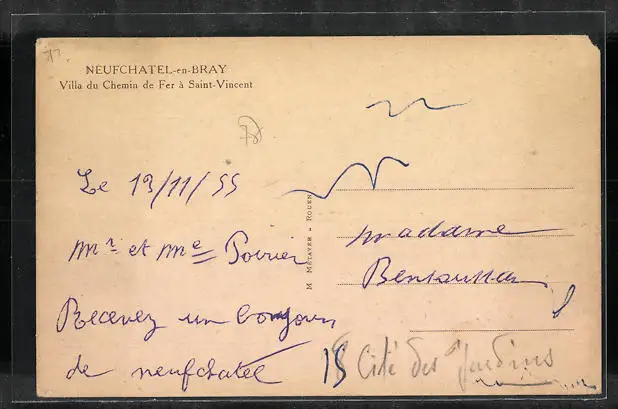 NEUFCHATEL-en-BRAY
Villa du Chemin de Fer à Saint-Vincent
Le 13/11/55
Mr et Me Poirier
Recevez un bonjour
de neufchatel
M MÉTAYER - ROUEN
madame
15 Cité des Jardins